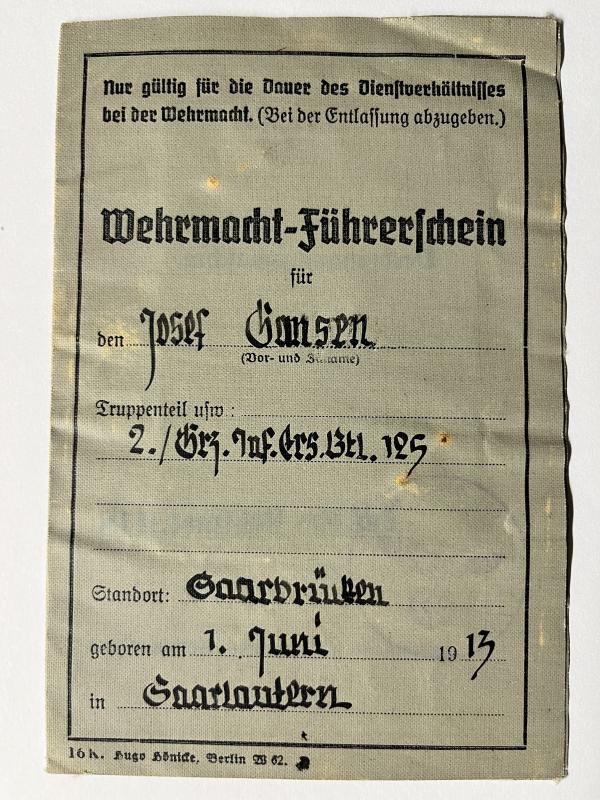 Nur gültig für die Dauer des Dienstverhältnisses
bei der Wehrmacht. (Bei der Entlassung abzugeben.)
Wehrmacht-Führerschein
für
den Josef Gansen
(Vor- und Zuname)
Truppenteil usw.:
2./Grz. Inf. Ers. Btl. 125
Standort: Saarbrücken
geboren am 1. Juni 1913
in Saarlautern
16 K. Hugo Hönicke, Berlin W 62.